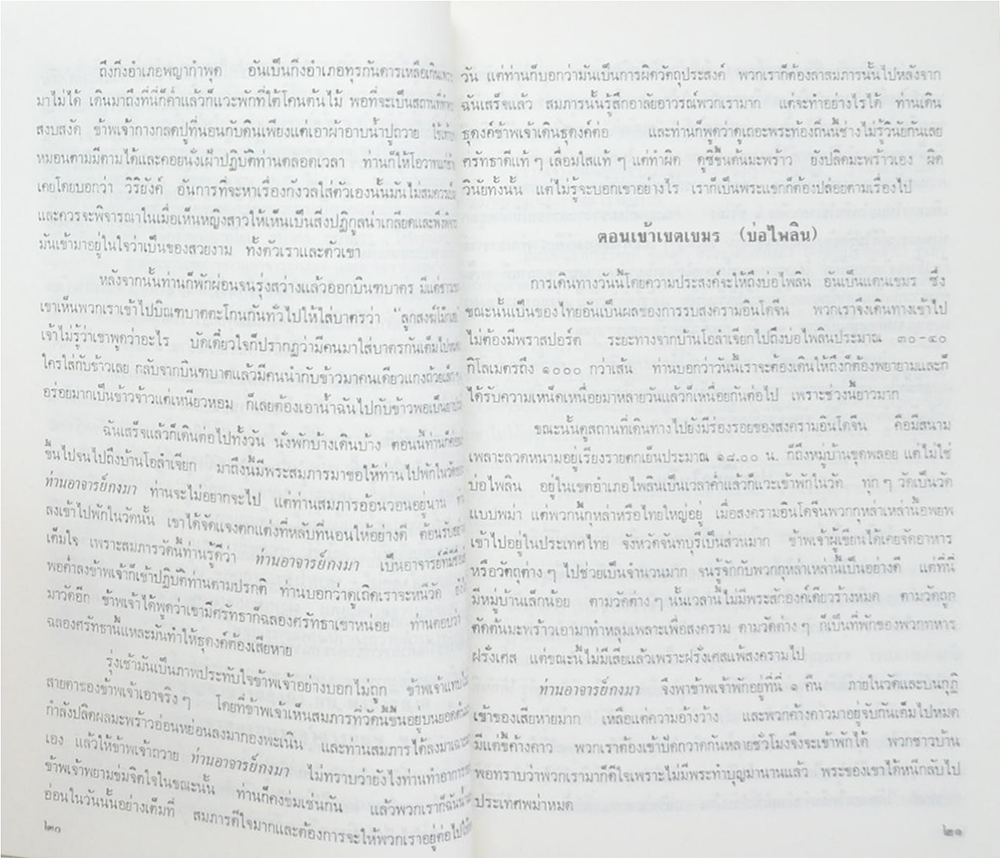 ถึงกิ่งอำเภอพญากำพุด อันเป็นกิ่งอำเภอทุรกันดารเหลือเกิน
มาไม่ได้ เดินมาถึงที่นี่ก็ค่ำแล้วก็แวะพักที่ใต้โคนต้นไม้ พอที่จะเป็นสถานที่
สงบสงัด ข้าพเจ้ากางกลดปูที่นอนกับดินเพียงแต่เอาผ้าอาบน้ำปูถวาย
หมอนตามมีตามได้และคอยนั่งเฝ้าปฏิบัติท่านตลอดเวลา ท่านก็ให้โอวาท
เคยโดยบอกว่า วิริยังค์ อันการที่จะหาเรื่องกังวลใส่ตัวเองนั้นมันไม่สมควร
และควรจะพิจารณาในเมื่อเห็นหญิงสาวให้เห็นเป็นสิ่งปฏิกูลน่าเกลียดและ
มันเข้ามาอยู่ในใจว่าเป็นของสวยงาม ทั้งตัวเราและตัวเขา
หลังจากนั้นท่านก็พักผ่อนจนรุ่งสว่างแล้วออกบิณฑบาตร
เขาเห็นพวกเราเข้าไปบิณฑบาตตะโกนกันทั่วไปให้ใส่บาตรว่า
เจ้าไม่รู้ว่าเขาพูดว่าอะไร บัดเดี๋ยวใจก็ปรากฏว่ามีคนมาใส่บาตรกันเต็ม
ใครใส่กับข้าวเลย กลับจากบิณฑบาตแล้วมีคนนำกับข้าวมาคนเดียวแกงถ้วย
อร่อยมากเป็นข้าวจ้าวแต่เหนียวหอม ก็เลยต้องเอาน้ำฉันไปกับข้าวพอเป็น
ฉันเสร็จแล้วก็เดินต่อไปทั้งวัน นั่งพักบ้างเดินบ้าง ตอนนี้ท่านก็
ขึ้นไปจนไปถึงบ้านโอลำเจียก มาถึงนี้มีพระสมภารมาขอให้ท่านไปพักใน
ท่านอาจารย์กงมา ท่านจะไม่อยากจะไป แต่ท่านสมภารอ้อนวอนอยู่นาน
ลงเข้าไปพักในวัดนั้น เขาได้จัดแจงตกแต่งที่หลับที่นอนให้อย่างดี ต้อนรับ
เต็มใจ เพราะสมภารวัดนี้ท่านรู้ดีว่า ท่านอาจารย์กงมา เป็นอาจารย์
พอค่ำลงข้าพเจ้าก็เข้าปฏิบัติท่านตามปรกติ ท่านบอกว่าดูเถิดเราจะหนีวัด
มาวัดอีก ข้าพเจ้าได้พูดว่าเขามีศรัทธาก็ฉลองศรัทธาเขาหน่อย ท่านตอบว่า
ฉลองศรัทธานี้แหละมันทำให้ธุดงค์ต้องเสียหาย
รุ่งเช้ามันเป็นภาพประทับใจข้าพเจ้าอย่างบอกไม่ถูก ข้าพเจ้า
สายตาของข้าพเจ้าเอาจริง ๆ โดยที่ข้าพเจ้าเห็นสมภารที่วัดนี้ขึ้นอยู่บนยอด
กำลังปลิดผลมะพร้าวอ่อนหย่อนลงมากองพะเนิน และท่านสมภารได้ลงมา
เอง แล้วให้ข้าพเจ้าถวาย ท่านอาจารย์กงมา ไม่ทราบว่ายังไงท่านทำอาการ
ข้าพเจ้าพยามข่มจิตใจในขณะนั้น ท่านก็คงข่มเช่นกัน แล้วพวกเราก็ฉัน
อ่อนในวันนั้นอย่างเต็มที่ สมภารดีใจมากและต้องการจะให้พวกเราอยู่ต่อไป
๒๐
วัน แต่ท่านก็บอกว่ามันเป็นการผิดวัตถุประสงค์ พวกเราก็ต้องลาสมภารนั้นไปหลังจาก
ฉันเสร็จแล้ว สมภารนั้นรู้สึกอาลัยอาวรณ์พวกเรามาก แต่จะทำอย่างไรได้ ท่านเดิน
ธุดงค์ข้าพเจ้าเดินธุดงค์ต่อ และท่านก็พูดว่าดูเถอะพระท้องถิ่นนี้ช่างไม่รู้วินัยกันเลย
ศรัทธาดีแท้ ๆ เลื่อมใสแท้ ๆ แต่ทำผิด ดูซิขึ้นต้นมะพร้าว ยังปลิดมะพร้าวเอง ผิด
วินัยทั้งนั้น แต่ไม่รู้จะบอกเขาอย่างไร เราก็เป็นพระแขกก็ต้องปล่อยตามเรื่องไป
ตอนเข้าเขตเขมร (บ่อไพลิน)
การเดินทางวันนี้โดยความประสงค์จะให้ถึงบ่อไพลิน อันเป็นแดนเขมร ซึ่ง
ขณะนั้นเป็นของไทยอันเป็นผลของการรบสงครามอินโดจีน พวกเราจึงเดินทางเข้าไป
ไม่ต้องมีพราสปอร์ต ระยะทางจากบ้านโอลำเจียกไปถึงบ่อไพลินประมาณ ๓๐-๔๐
กิโลเมตรถึง ๑๐๐๐ กว่าเส้น ท่านบอกว่าวันนี้เราจะต้องเดินให้ถึงก็ต้องพยายามและก็
ได้รับความเหน็ดเหนื่อยมาหลายวันแล้วก็เหนื่อยกันต่อไป เพราะช่วงนี้ยาวมาก
ขณะนั้นดูสถานที่เดินทางไปยังมีร่องรอยของสงครามอินโดจีน คือมีสนาม
เพลาะลวดหนามอยู่เรียงรายตกเย็นประมาณ ๑๘.๐๐ น. ก็ถึงหมู่บ้านขุดพลอย แต่ไม่ใช่
บ่อไพลิน อยู่ในเขตอำเภอไพลินเป็นเวลาค่ำแล้วก็แวะเข้าพักในวัด ทุก ๆ วัดเป็นวัด
แบบพม่า แต่พวกนี้กุหล่าหรือไทยใหญ่อยู่ เมื่อสงครามอินโดจีนพวกกุหล่าเหล่านี้อพยพ
เข้าไปอยู่ในประเทศไทย จังหวัดจันทบุรีเป็นส่วนมาก ข้าพเจ้าผู้เขียนได้เคยจัดอาหาร
หรือวัตถุต่าง ๆ ไปช่วยเป็นจำนวนมาก จนรู้จักกับพวกกุหล่าเหล่านี้เป็นอย่างดี แต่ที่นี่
มีหมู่บ้านเล็กน้อย ตามวัดต่าง ๆ นั้นเวลานี้ไม่มีพระสักองค์เดียวร้างหมด ตามวัดถูก
ตัดต้นมะพร้าวเอามาทำหลุมเพลาะเพื่อสงคราม ตามวัดต่าง ๆ ก็เป็นที่พักของพวกทหาร
ฝรั่งเศส แต่ขณะนี้ไม่มีเสียแล้วเพราะฝรั่งเศสแพ้สงครามไป
ท่านอาจารย์กงมา จึงพาข้าพเจ้าพักอยู่ที่นี่ ๑ คืน ภายในวัดและบนกุฏิ
เข้าของเสียหายมาก เหลือแต่ความอ้างว้าง และพวกค้างคาวมาอยู่จับกันเต็มไปหมด
มีแต่ขี้ค้างคาว พวกเราต้องเข้าปัดกวาดกันหลายชั่วโมงจึงจะเข้าพักได้ พวกชาวบ้าน
พอทราบว่าพวกเรามาก็ดีใจเพราะไม่มีพระทำบุญมานานแล้ว พระของเขาได้หนีกลับไป
ประเทศพม่าหมด
๒๑